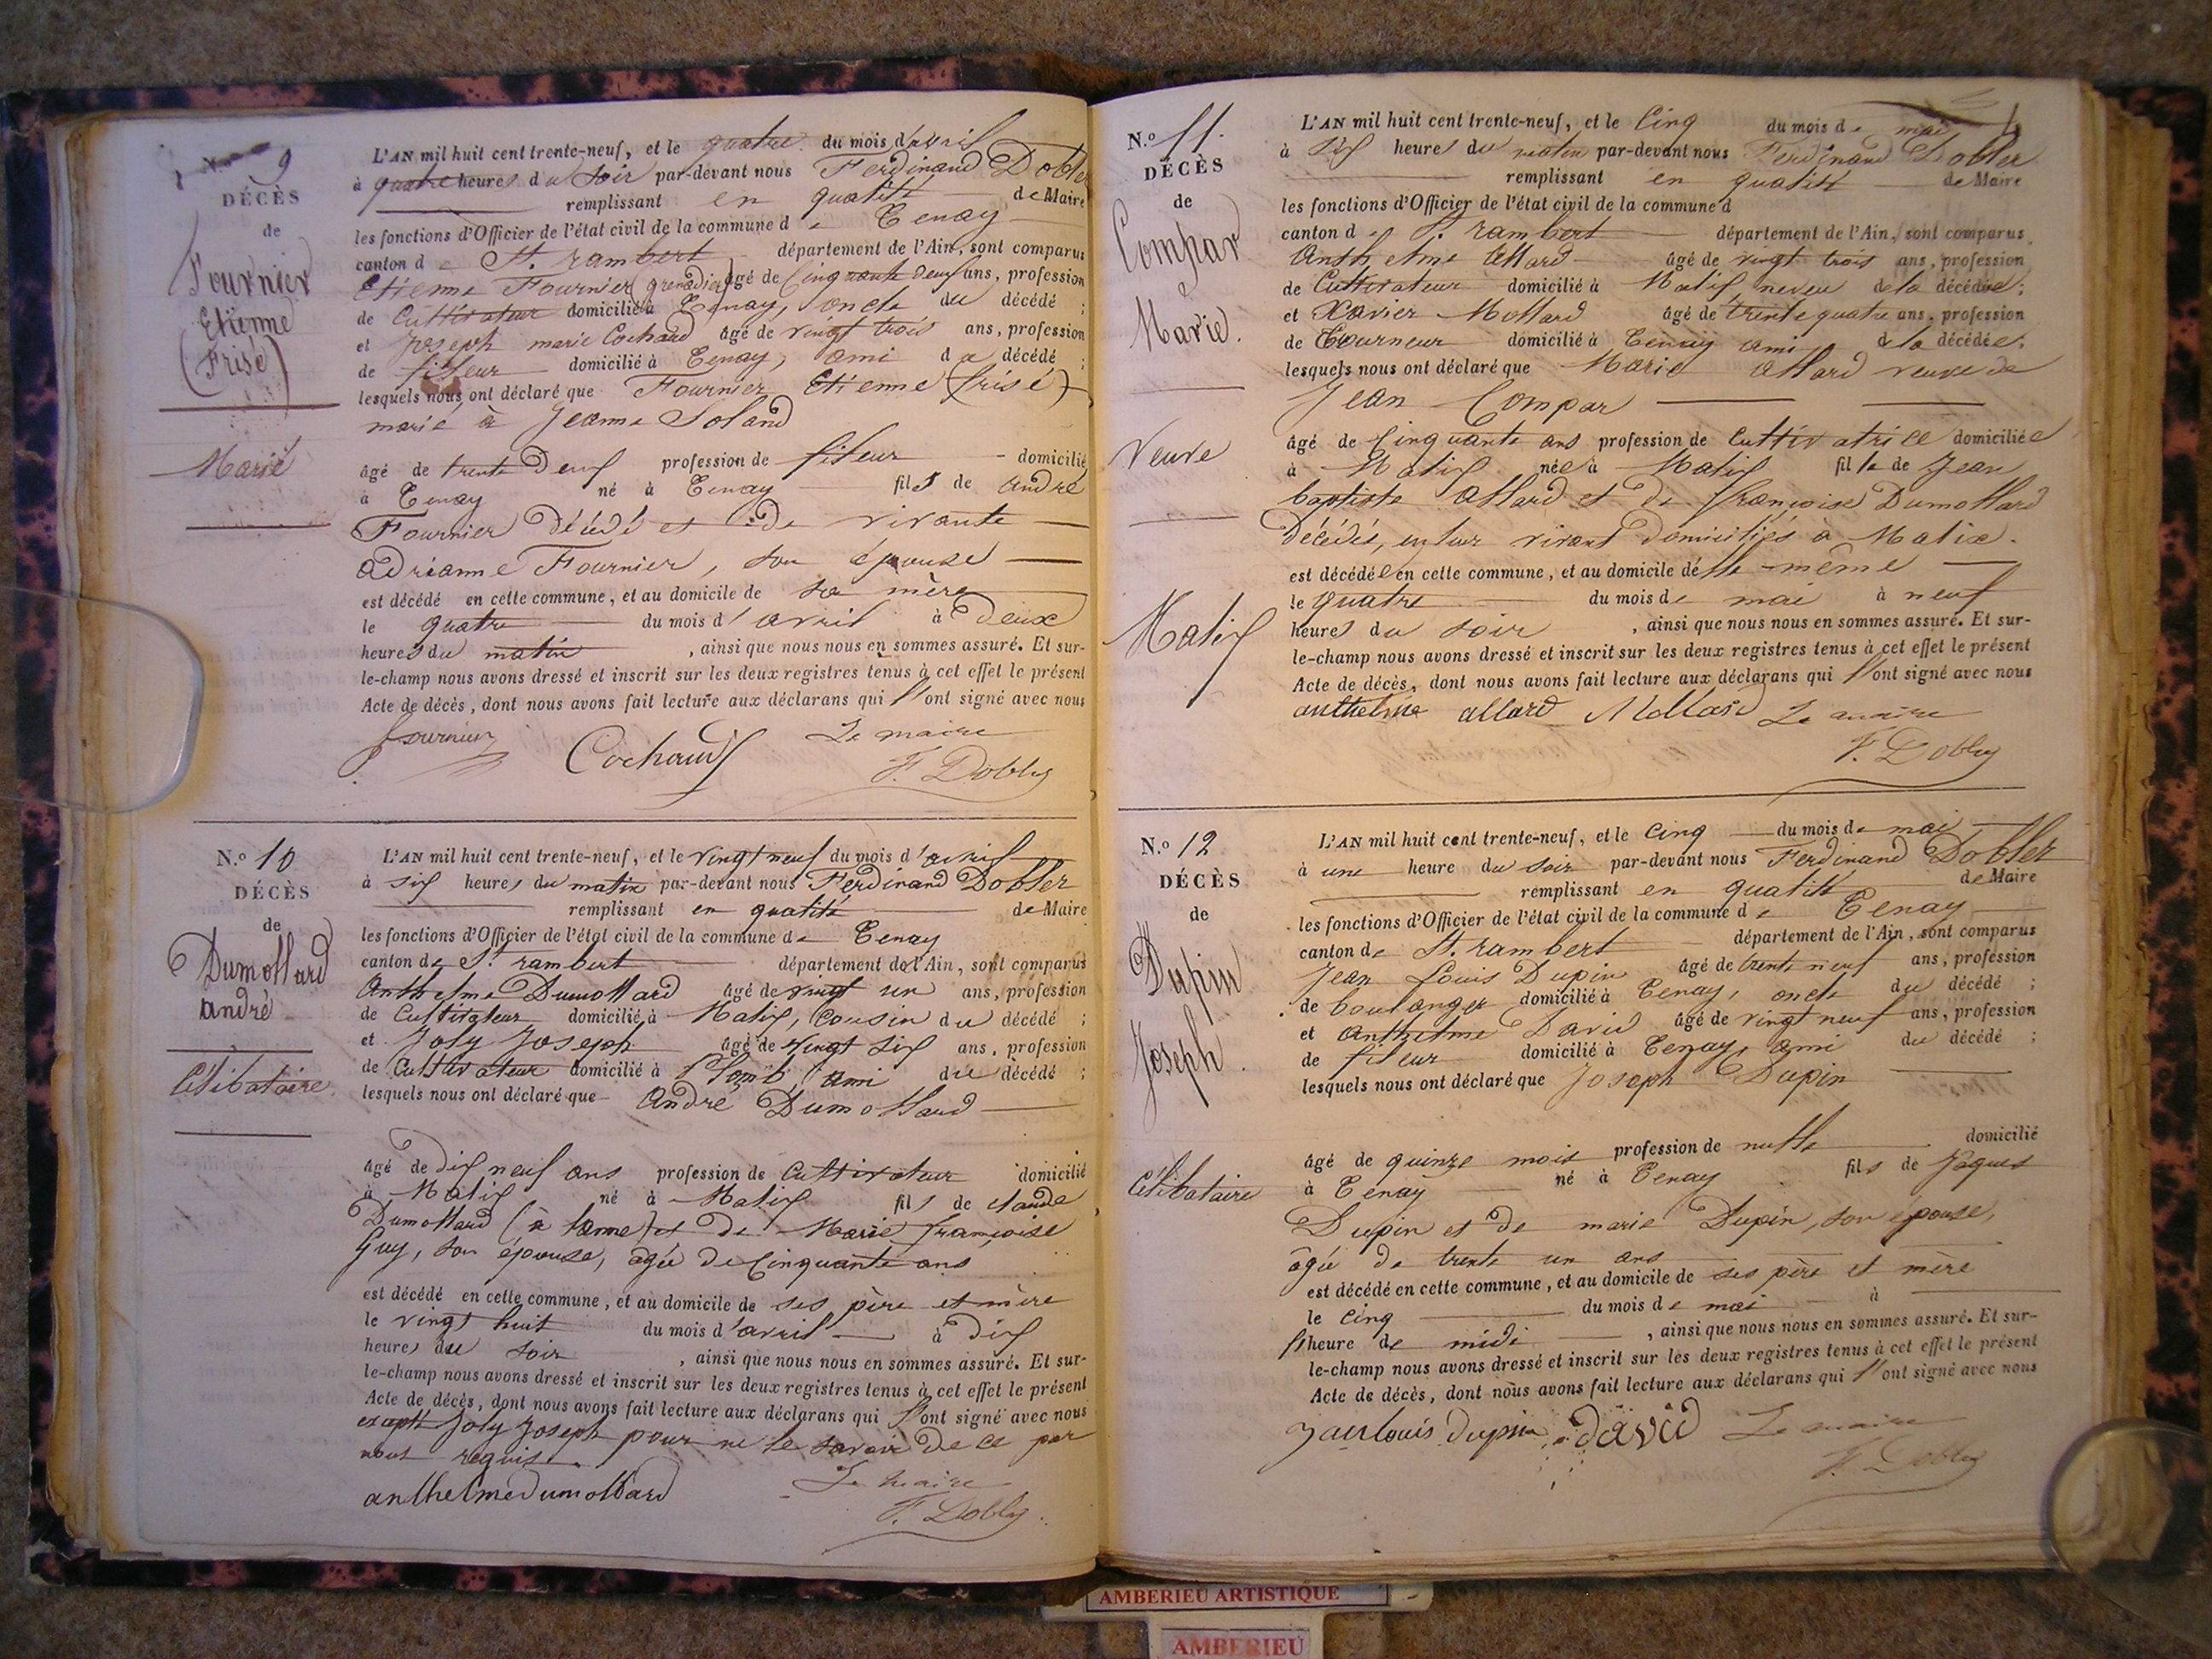 N.º 9
DÉCÈS
de
Fournier
Etienne
(Frisé)
Marié
L'AN mil huit cent trente-neuf, et le quatre du mois d'avril
à quatre heures du soir par-devant nous Ferdinand Dobler
remplissant en qualité de Maire
les fonctions d'Officier de l'état civil de la commune de Tenay
canton de St. rambert département de l'Ain, sont comparus
Etienne Fournier (grenadier) âgé de Cinquante deux ans, profession
de Cultivateur domicilié à Tenay, oncle du décédé ;
et Joseph marie Cochard âgé de vingt trois ans, profession
de fileur domicilié à Tenay, ami du décédé ;
lesquels nous ont déclaré que Fournier Etienne (frisé)
marié à Jeanne Soland
âgé de trente Deux profession de fileur domicilié
à Tenay né à Tenay fils de André
Fournier Décédé et de vivante
Adrianne Fournier, son épouse
est décédé en cette commune, et au domicile de sa mère
le quatre du mois d'avril à Deux
heures du matin , ainsi que nous nous en sommes assuré. Et sur-
le-champ nous avons dressé et inscrit sur les deux registres tenus à cet effet le présent
Acte de décès, dont nous avons fait lecture aux déclarans qui l'ont signé avec nous
fournier Cochard Le maire
F. Dobler
N.º 10
DÉCÈS
de
Dumollard
andré
Célibataire
L'AN mil huit cent trente-neuf, et le vingt neuf du mois d'avril
à six heures du matin par-devant nous Ferdinand Dobler
remplissant en qualité de Maire
les fonctions d'Officier de l'état civil de la commune de Tenay
canton de St. rambert département de l'Ain, sont comparus
Anthelme Dumollard âgé de vingt un ans, profession
de Cultivateur domicilié à Malix, Cousin du décédé ;
et Joly Joseph âgé de vingt six ans, profession
de Cultivateur domicilié à Plomb, ami du décédé ;
lesquels nous ont déclaré que André Dumollard
âgé de Dix neuf ans profession de Cultivateur domicilié
à Malix né à Malix fils de claude
Dumollard et de Marie françoise
Guy, son épouse, agée de Cinquante ans
est décédé en cette commune, et au domicile de ses père et mère
le vingt huit du mois d'avril à Dix
heures du soir , ainsi que nous nous en sommes assuré. Et sur-
le-champ nous avons dressé et inscrit sur les deux registres tenus à cet effet le présent
Acte de décès, dont nous avons fait lecture aux déclarans qui l'ont signé avec nous
excepté Joly Joseph pour ne le savoir de ce par
nous requis.
anthelme dumollard Le maire
F. Dobler
N.º 11.
DÉCÈS
de
Compar
Marie.
Veuve
Malix
L'AN mil huit cent trente-neuf, et le Cinq du mois de mai
à six heures du matin par-devant nous Ferdinand Dobler
remplissant en qualité de Maire
les fonctions d'Officier de l'état civil de la commune d
canton de S. rambert département de l'Ain, sont comparus
Anthelme Allard âgé de vingt trois ans, profession
de Cultivateur domicilié à Malix neveu de la décédée ;
et Xavier Mollard âgé de trente quatre ans, profession
de Tourneur domicilié à Tenay ami de la décédée ;
lesquels nous ont déclaré que Marie Allard veuve de
Jean Compar
âgé de Cinquante ans profession de Cultivatrice domiciliée
à Malix née à Malix fille de Jean
baptiste Allard et de françoise Dumollard
Décédés, en leur vivant Domiciliés à Malix.
est décédée en cette commune, et au domicile d'elle même
le quatre du mois de mai à neuf
heures du soir , ainsi que nous nous en sommes assuré. Et sur-
le-champ nous avons dressé et inscrit sur les deux registres tenus à cet effet le présent
Acte de décès, dont nous avons fait lecture aux déclarans qui l'ont signé avec nous
anthelme allard Mollard Le maire
F. Dobler
N.º 12
DÉCÈS
de
Dupin
Joseph.
Célibataire
L'AN mil huit cent trente-neuf, et le Cinq du mois de mai
à une heure du soir par-devant nous Ferdinand Dobler
remplissant en qualité de Maire
les fonctions d'Officier de l'état civil de la commune de Tenay
canton de St. rambert département de l'Ain, sont comparus
Jean Louis Dupin âgé de trente neuf ans, profession
de boulanger domicilié à Tenay, oncle du décédé ;
et Anthelme David âgé de vingt neuf ans, profession
de fileur domicilié à Tenay, ami du décédé ;
lesquels nous ont déclaré que Joseph Dupin
âgé de quinze mois profession de nulle domicilié
à Tenay né à Tenay fils de Jaques
Dupin et de marie Dupin, son épouse,
agée de trente un ans
est décédé en cette commune, et au domicile de ses père et mère
le Cinq du mois de mai à
l'heure de midi , ainsi que nous nous en sommes assuré. Et sur-
le-champ nous avons dressé et inscrit sur les deux registres tenus à cet effet le présent
Acte de décès, dont nous avons fait lecture aux déclarans qui l'ont signé avec nous
jan louis dupin david Le maire
F. Dobler
AMBERIEU ARTISTIQUE
AMBERIEU